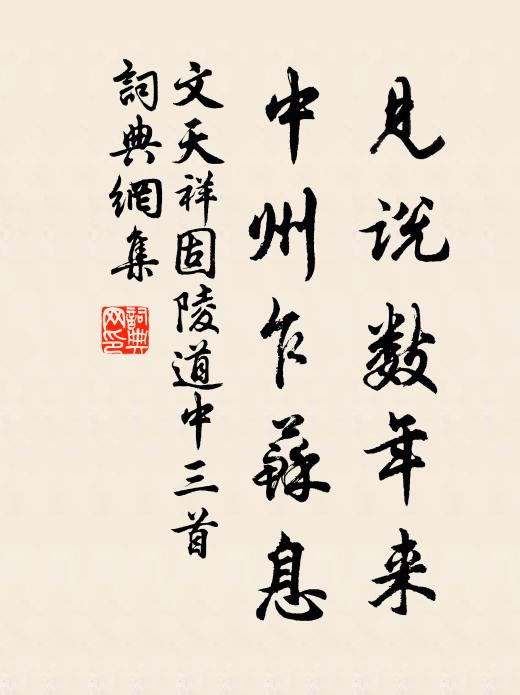 见说数年来
中州乍蘇息
文天祥固陵道中三首
詞典網集
詞典网印